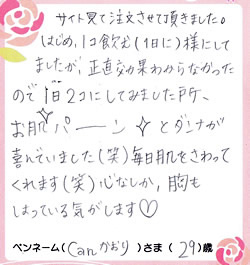 サイト見て注文させて頂きました。
はじめ、1コ飲む(1日に)様にして
ましたが、正直効果わからなかった
ので1日2コにしてみました所、
お肌パーンとダンナが
喜んでいました(笑)毎日肌をさわって
くれます(笑)心なしか、胸も
はっている気がします♡
ペンネーム(Canかおり)さま(29)歳